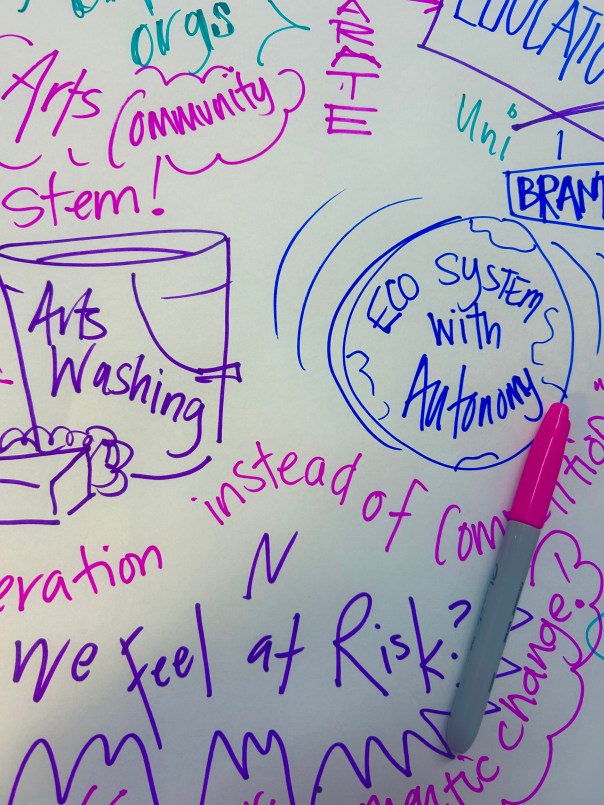 orgs
ARATE
EDUCATIO
Arts
Community
Uni
BRANT
stem!
Arts
Washing
ECO SYSTEMS
with
Autonomy
instead of
eration
N
we Feel at Risk?
change?